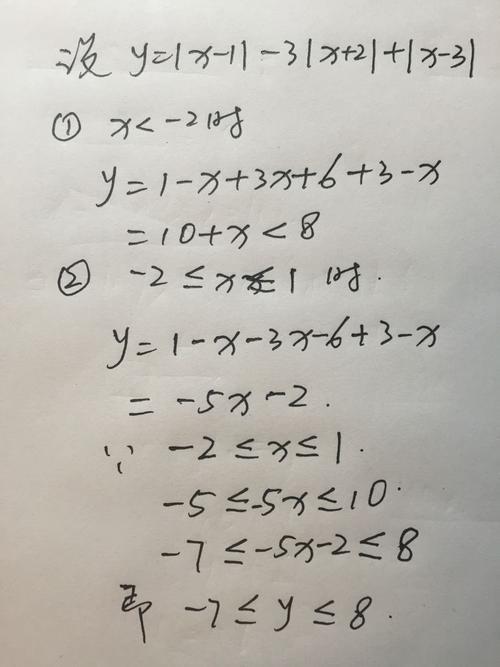 设 y=|x-1|-3|x+2|+|x-3|
① x<-2时
y=1-x+3x+6+3-x
=10+x<8
② -2≤x≤1 时.
y=1-x-3x-6+3-x
=-5x-2.
∵ -2≤x≤1.
-5≤-5x≤10.
-7≤-5x-2≤8
即 -7≤y≤8.